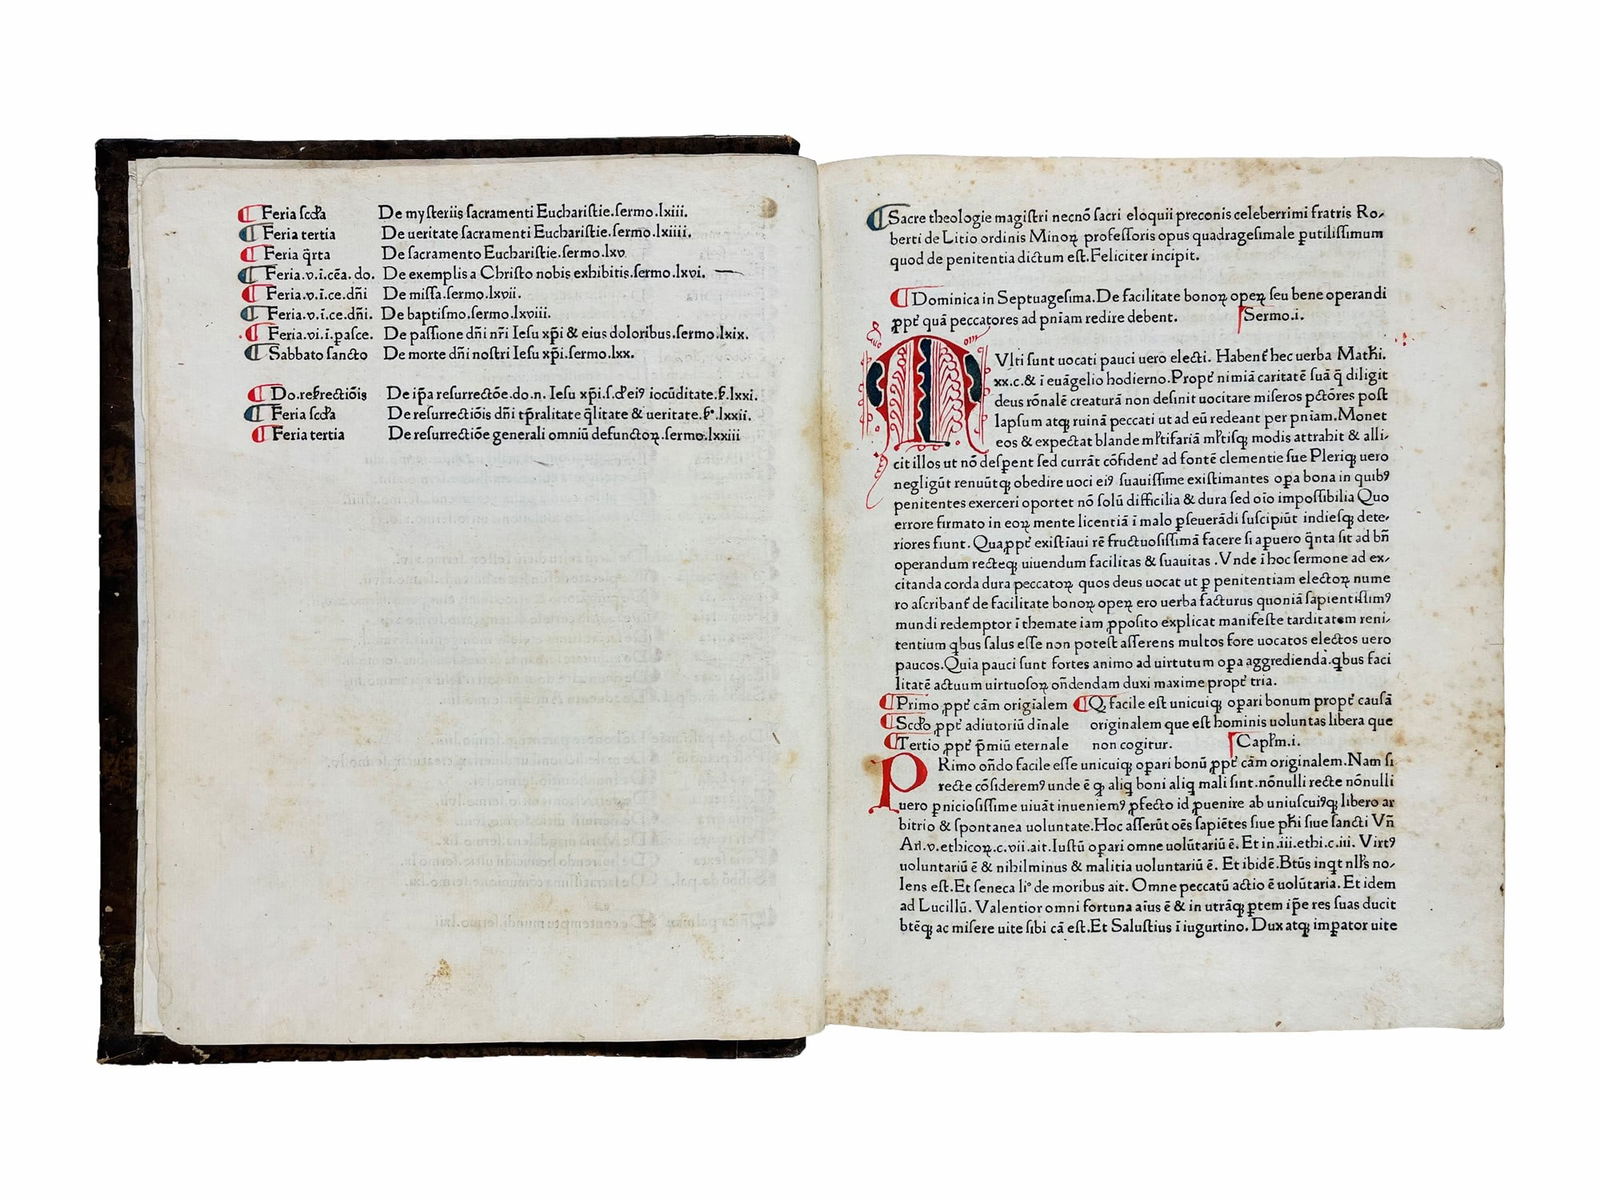 Feria sc̄da De mysteriis sacramenti Eucharistie.sermo.lxiii.
Feria tertia De ueritate sacramenti Eucharistie.sermo.lxiiii.
Feria q̄rta De sacramento Eucharistie.sermo.lxv.
Feria.v.ī.cēa.do. De exemplis a Christo nobis exhibitis.sermo.lxvi.
Feria.v.ī.ce.dn̄i De missa.sermo.lxvii.
Feria.v.ī.ce.dn̄i. De baptismo.sermo.lxviii.
Feria.vi.ī.pasce. De passione dn̄i nr̄i Iesu xp̄i & eius doloribus.sermo.lxix.
Sabbato sancto De morte dn̄i nostri Iesu xp̄i.sermo.lxx.
Do.resrectiōis De ip̄a resurrectōe.do.n. Iesu xp̄i.s.d̄ eiꝰ iocūditate.ẜ.lxxi.
Feria sc̄da De resurrectiōis dn̄i tp̄ralitate q̄litate & ueritate.ẜ.lxxii.
Feria tertia De resurrectiōe generali omniū defunctoꝝ.sermo.lxxiii
Sacre theologie magistri necnō sacri eloquii preconis celeberrimi fratris Ro-
berti de Litio ordinis Minoꝝ professoris opus quadragesimale ꝑutilissimum
quod de penitentia dictum est.Feliciter incipit.
Dominica in Septuagesima.De facilitate bonoꝝ opeꝝ seu bene operandi
ꝓpt̄ quā peccatores ad pn̄iam redire debent. Sermo.i.
MVlti sunt uocati pauci uero electi. Habent̄ hec uerba Math̄i.
xx.c.& ī euāgelio hodierno.Propt̄ nimiā caritatē suā q̄ diligit
deus rōnalē creaturā non desinit uocitare miseros pctōres post
lapsum atqꝫ ruinā peccati ut ad eū redeant per pniam.Monet
eos & expectat blande ml̄tifariā ml̄tisqꝫ modis attrahit & alli-
cit illos ut nō desꝑent sed currāt cōfident̄ ad fontē clementie sue Pleriqꝫ uero
negligūt renuūtqꝫ obedire uoci eiꝰ suauissime existimantes oꝑa bona in quibꝰ
penitentes exerceri oportet nō solū difficilia & dura sed oīo impossibilia Quo
errore firmato in eoꝝ mente licentiā ī malo ꝑseuerādi suscipiūt indiesqꝫ dete-
riores fiunt. Quaꝓpt̄ existīaui rē fructuosissimā facere si aꝑuero q̄nta sit ad bn̄
operandum recteqꝫ uiuendum facilitas & suauitas . Vnde ī hoc sermone ad ex-
citanda corda dura peccatoꝝ quos deus uocat ut ꝑ penitentiam electoꝝ nume
ro ascribant̄ de facilitate bonoꝝ opeꝝ ero uerba facturus quoniā sapientissimꝰ
mundi redemptor ī themate iam ꝓposito explicat manifeste tarditatem reni-
tentium qbus salus esse non potest asserens multos fore uocatos electos uero
paucos.Quia pauci sunt fortes animo ad uirtutum oꝑa aggredienda.qbus faci
litatē actuum uirtuosoꝝ on̄dendam duxi maxime propt̄ tria.
Primo ꝓpt̄ cām origīalem
Scd̄o ꝓpt̄ adiutoriū diīnale
Tertio ꝓpt̄ p̄miū eternale
Q. facile est unicuiqꝫ oꝑari bonum propt̄ causā
originalem que est hominis uoluntas libera que
non cogitur. Capl̄m.i.
PRimo on̄do facile esse unicuiqꝫ oꝑari bonū ꝓpt̄ cām originalem.Nam si
recte cōsideremꝰ unde ē ꝙ aliq boni aliq mali sint.nōnulli recte nōnulli
uero ꝑniciosissime uiuāt inueniemꝰ ꝓfecto id ꝓuenire ab uniuscuiꝰqꝫ libero ar
bitrio & spontanea uoluntate.Hoc asserūt oēs sapiētes siue ph̄i siue sancti Vn̄
Ari.v.ethicoꝝ.c.vii.ait.Iustū oꝑari omne uolūtariū ē. Et in.iii.ethi.c.iii. Virtꝰ
uoluntariū ē & nihilminus & malitia uoluntariū ē. Et ibidē.Btūs inqt nll̄s no-
lens est.Et seneca li° de moribus ait. Omne peccatū actio ē uolūtaria. Et idem
ad Lucillū. Valentior omni fortuna aīus ē & in utrāqꝫ ꝑtem ip̄e res suas ducit
btēqꝫ ac misere uite sibi cā est.Et Salustius ī iugurtino. Dux atqꝫ imꝑator uite